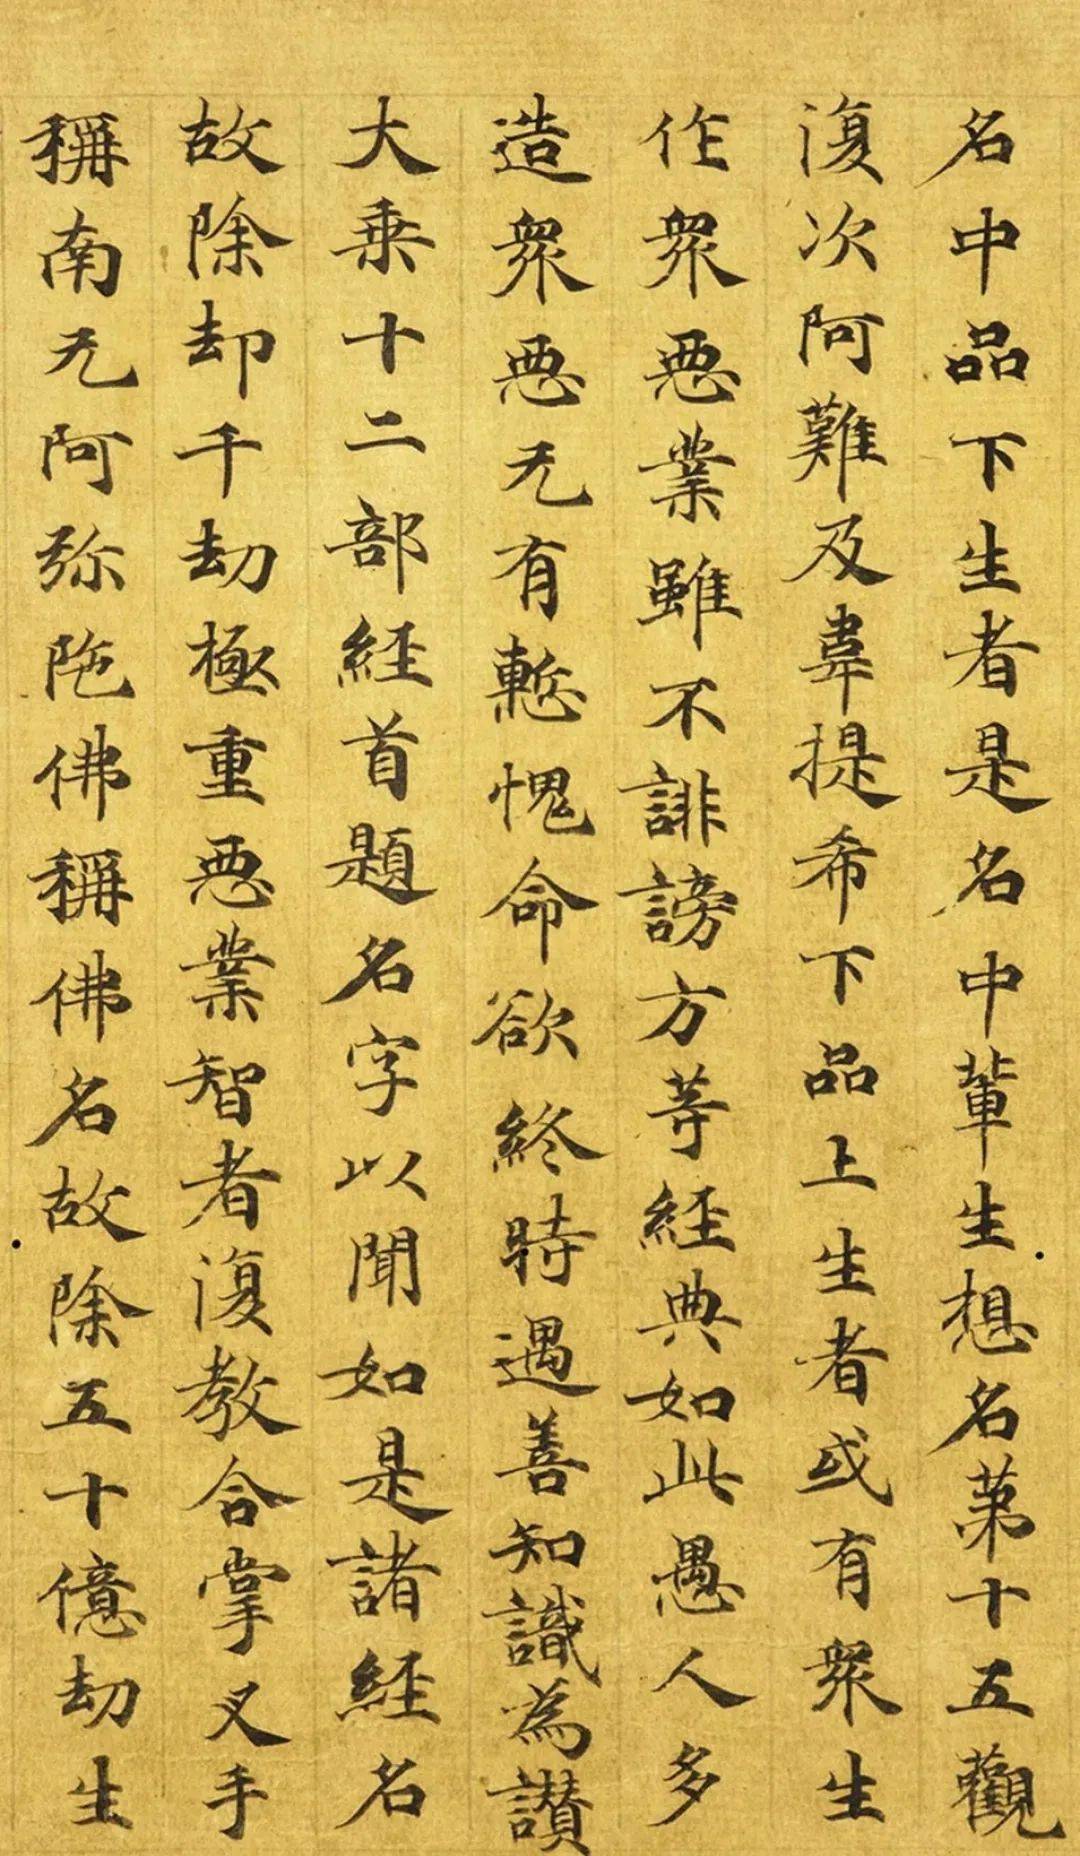 名中品下生者是名中輩生想名第十五觀
復次阿難及韋提希下品上生者或有衆生
作衆惡業雖不誹謗方等經典如此愚人多
造衆惡无有慙愧命欲終時遇善知識為讃
大乗十二部經首題名字以聞如是諸經名
故除却千劫極重惡業智者復教合掌叉手
稱南无阿弥陁佛稱佛名故除五十億劫生